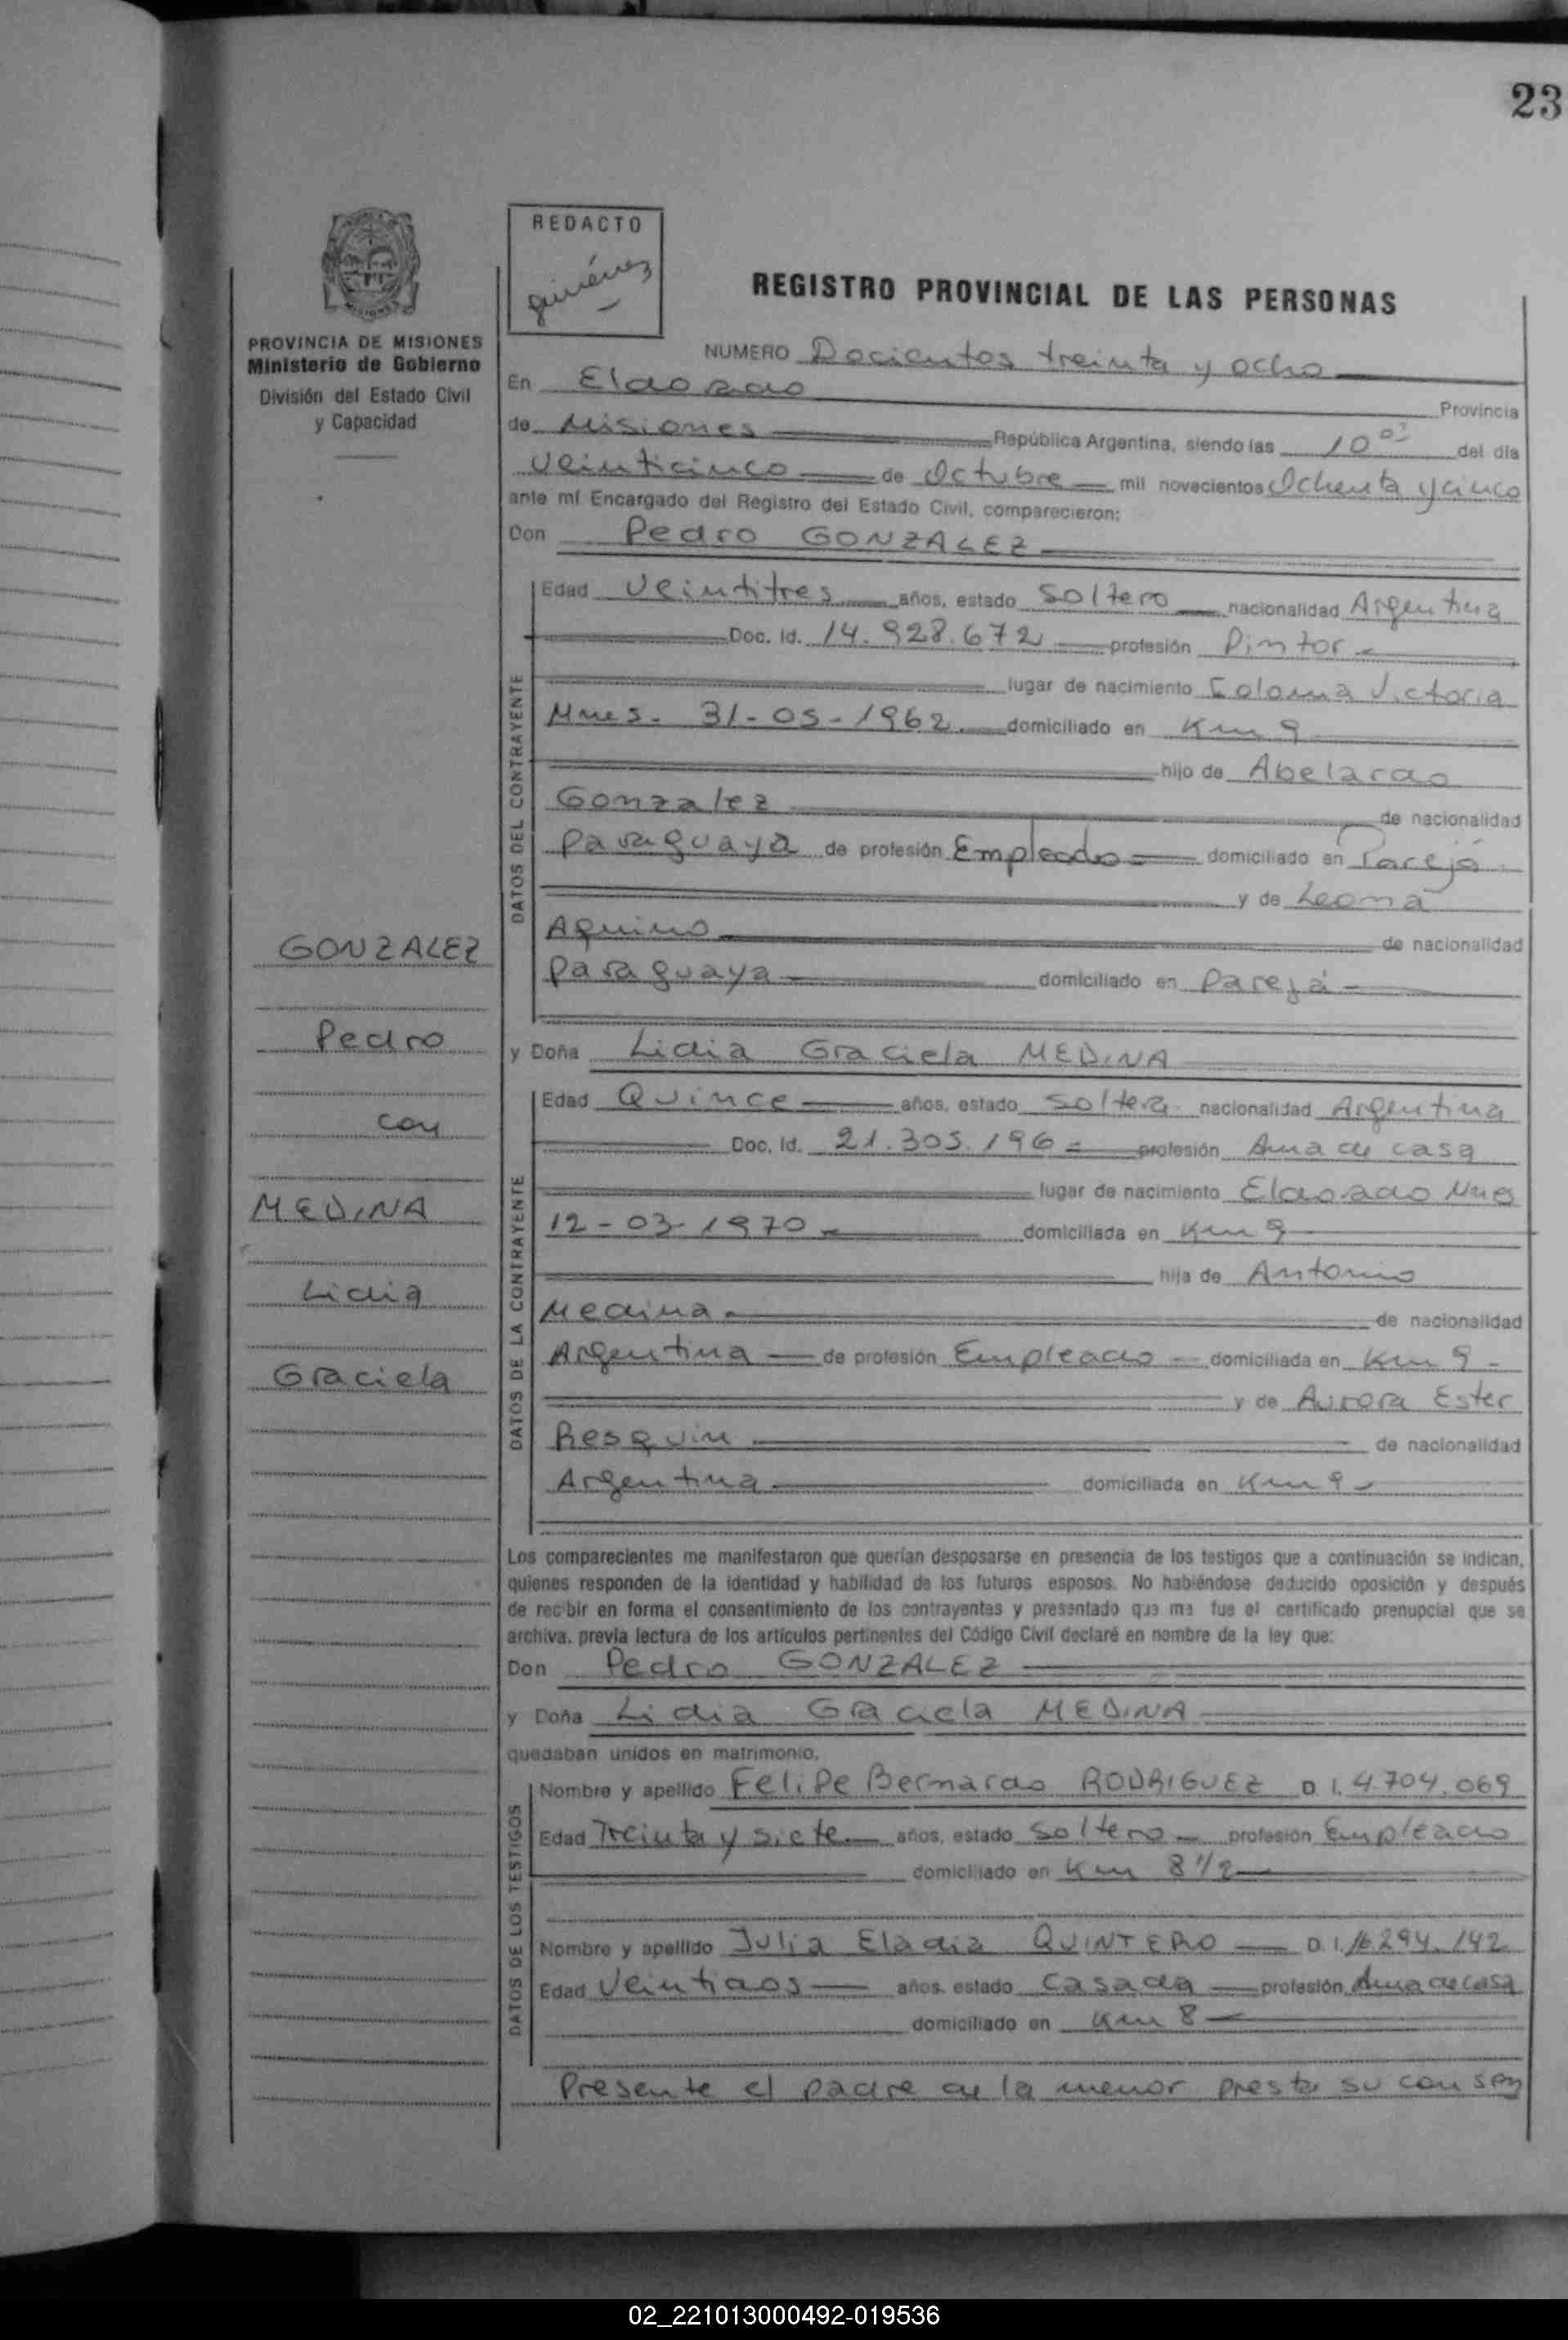 23
REDACTO
Giménez
REGISTRO PROVINCIAL DE LAS PERSONAS
PROVINCIA DE MISIONES
Ministerio de Gobierno
División del Estado Civil
y Capacidad
NUMERO Docientos treinta y ocho
En Eldorado Provincia
de Misiones República Argentina, siendo las 10 del día
veinticinco de Octubre mil novecientos Ochenta y cinco
ante mí Encargado del Registro del Estado Civil, comparecieron:
Don Pedro GONZALEZ
DATOS DEL CONTRAYENTE
Edad Veintitres años, estado Soltero nacionalidad Argentina
Doc. Id. 14.928.672 profesión Pintor
lugar de nacimiento Colonia Victoria
Mnes. 31-05-1962 domiciliado en Km 9
hijo de Abelardo
Gonzalez de nacionalidad
Paraguaya de profesión Empleado domiciliado en Parejá
y de Leona
Aquino de nacionalidad
Paraguaya domiciliado en Parejá
y Doña Lidia Graciela MEDINA
DATOS DE LA CONTRAYENTE
Edad Quince años, estado Soltera nacionalidad Argentina
Doc. Id. 21.305.196 profesión Ama de casa
lugar de nacimiento Eldorado Mnes
12-03-1970 domiciliada en Km 9
hija de Antonio
Medina de nacionalidad
Argentina de profesión Empleado domiciliada en Km 9
y de Aurora Ester
Resquin de nacionalidad
Argentina domiciliada en Km 9
GONZALEZ
Pedro
con
MEDINA
Lidia
Graciela
Los comparecientes me manifestaron que querían desposarse en presencia de los testigos que a continuación se indican,
quienes responden de la identidad y habilidad de los futuros esposos. No habiéndose deducido oposición y después
de recibir en forma el consentimiento de los contrayentes y presentado que me fue el certificado prenupcial que se
archiva, previa lectura de los artículos pertinentes del Código Civil declaré en nombre de la ley que:
Don Pedro GONZALEZ
y Doña Lidia Graciela MEDINA
quedaban unidos en matrimonio.
DATOS DE LOS TESTIGOS
Nombre y apellido Felipe Bernardo RODRIGUEZ D.I. 4.704.069
Edad Treinta y siete años, estado Soltero profesión Empleado
domiciliado en Km 8 1/2
Nombre y apellido Julia Eladia QUINTERO D.I. 16.294.142
Edad Veintidos años, estado Casada profesión Ama de casa
domiciliado en Km 8
Presente el padre de la menor presta su consen
02_221013000492-019536